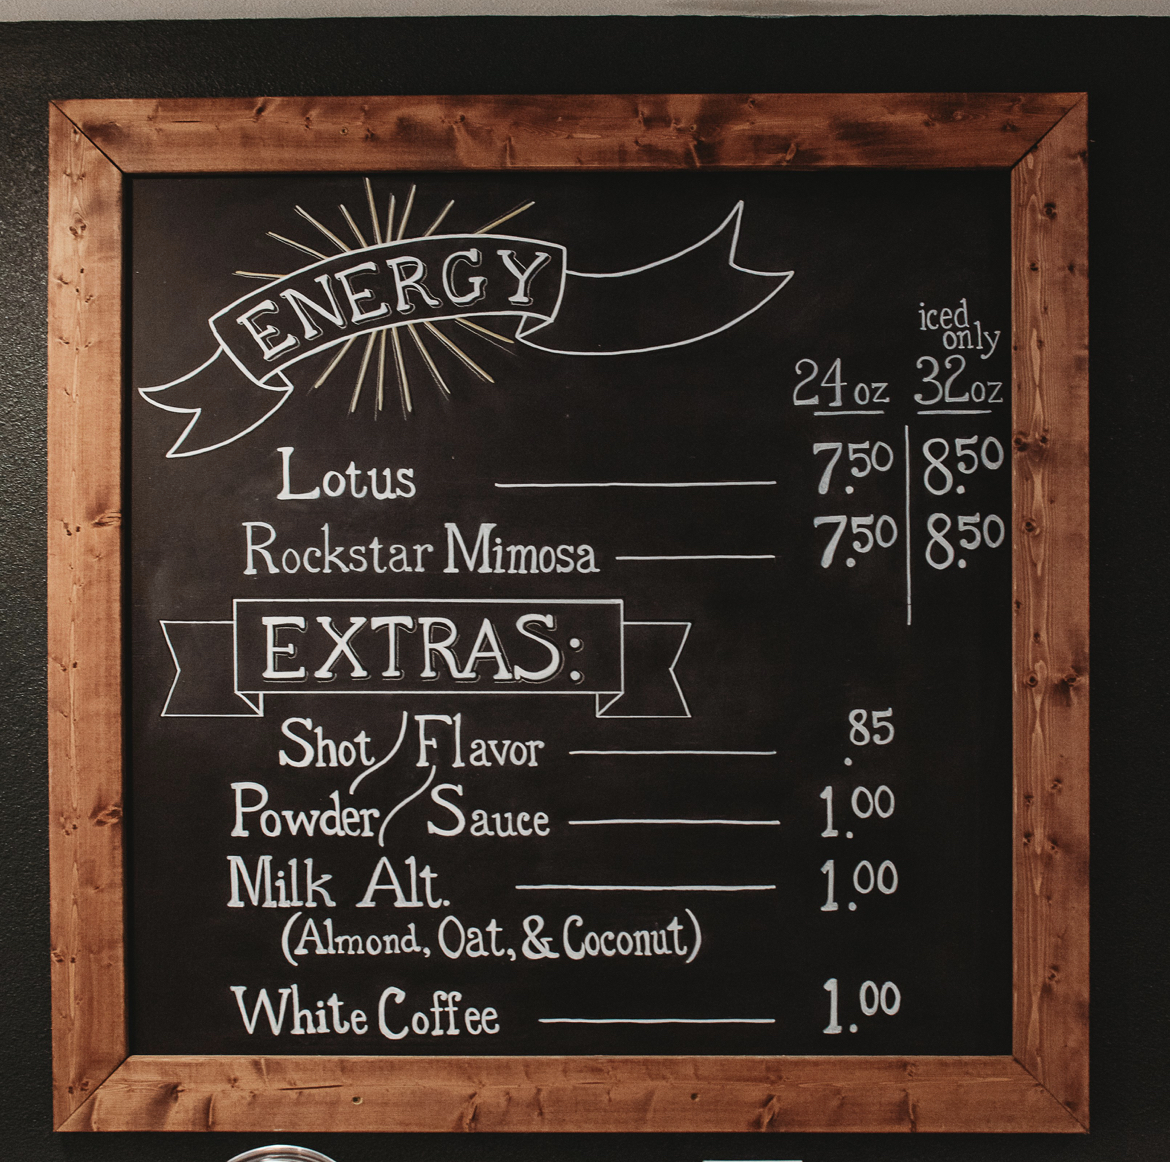 ENERGY
iced
only
24 oz 32 oz
Lotus 7.50 8.50
Rockstar Mimosa 7.50 8.50
EXTRAS:
Shot/Flavor .85
Powder/Sauce 1.00
Milk Alt. 1.00
(Almond, Oat, & Coconut)
White Coffee 1.00